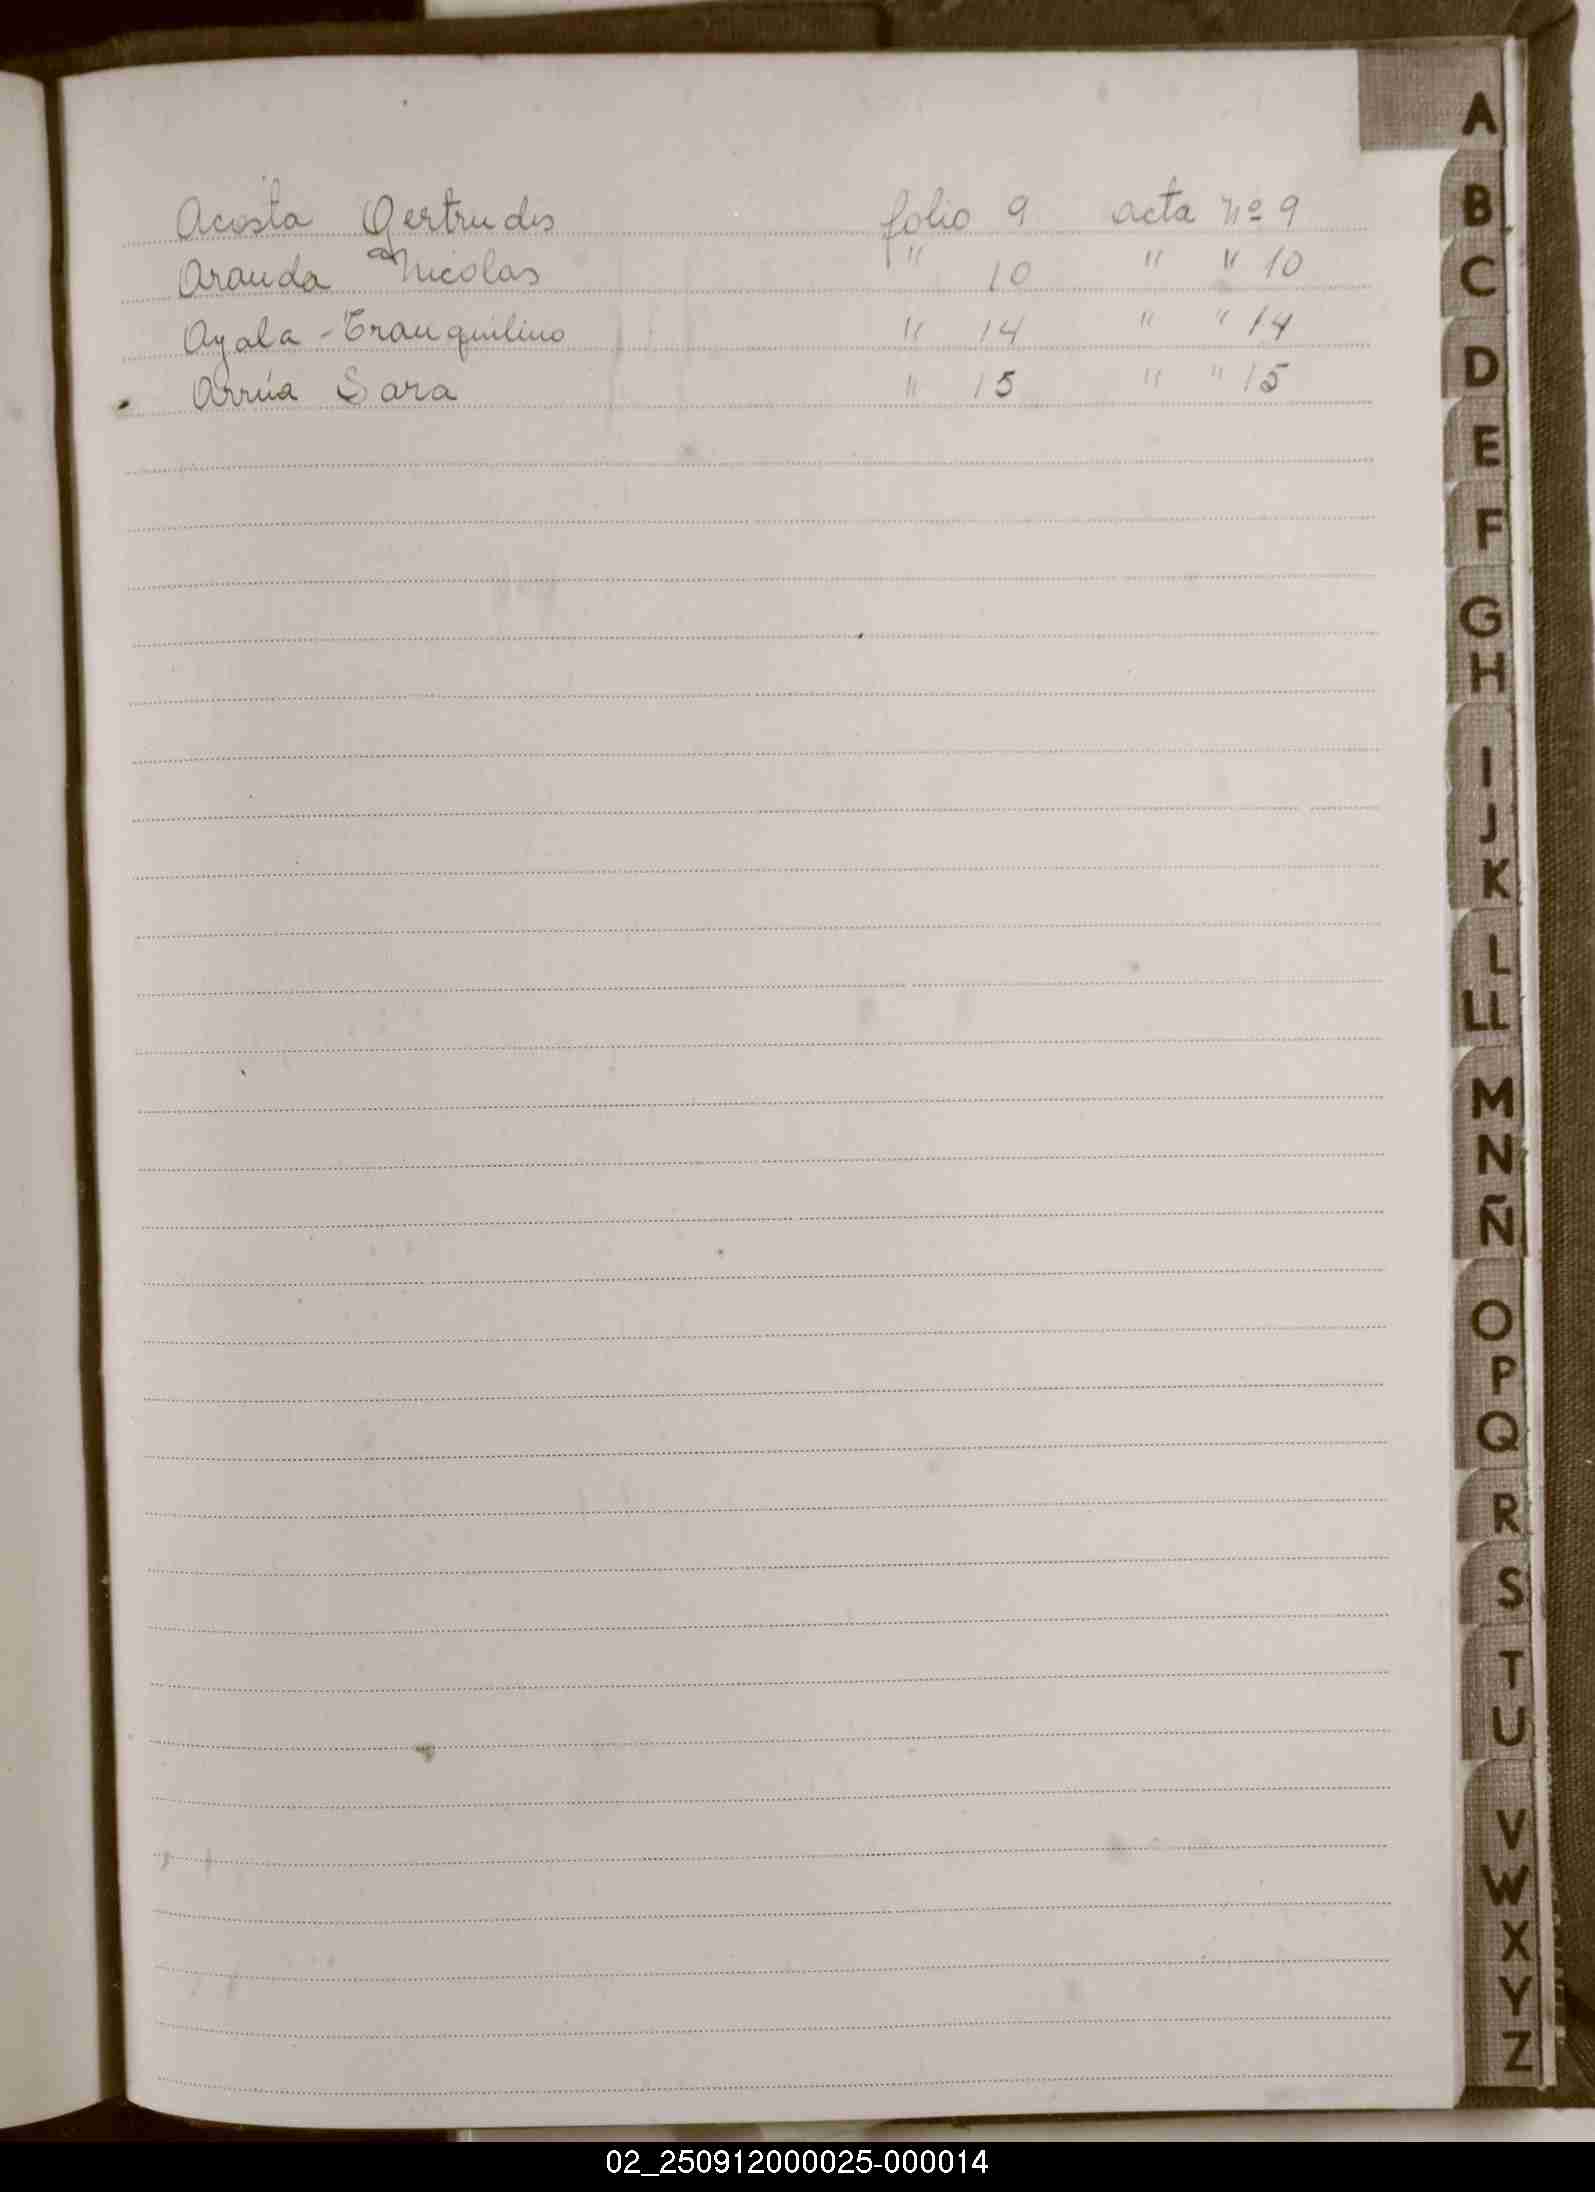 Acosta Gertrudis folio 9 acta nº 9
Aranda Nicolas " 10 " " 10
Ayala - Tranquilino " 14 " " 14
Arrúa Sara " 15 " " 15
A
B
C
D
E
F
G
H
I
J
K
L
LL
M
N
Ñ
O
P
Q
R
S
T
U
V
W
X
Y
Z
02_250912000025-000014